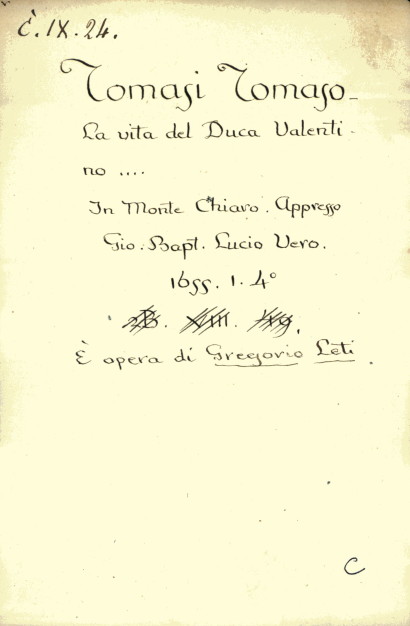 È. IX. 24.
Tomasi Tomaso_
La vita del Duca Valenti-
no ....
In Monte Chiaro. Appresso
Gio: Bapt. Lucio Vero.
1655. 1. 4°
È opera di Gregorio Leti.
C